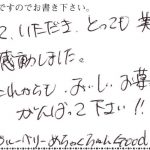 ですのでお書き下さい。
て、いただき、とっても美
感動しました。
これからも、おいしいお菓
がんばって下さい!!
ブルーベリーめちゃくちゃgood